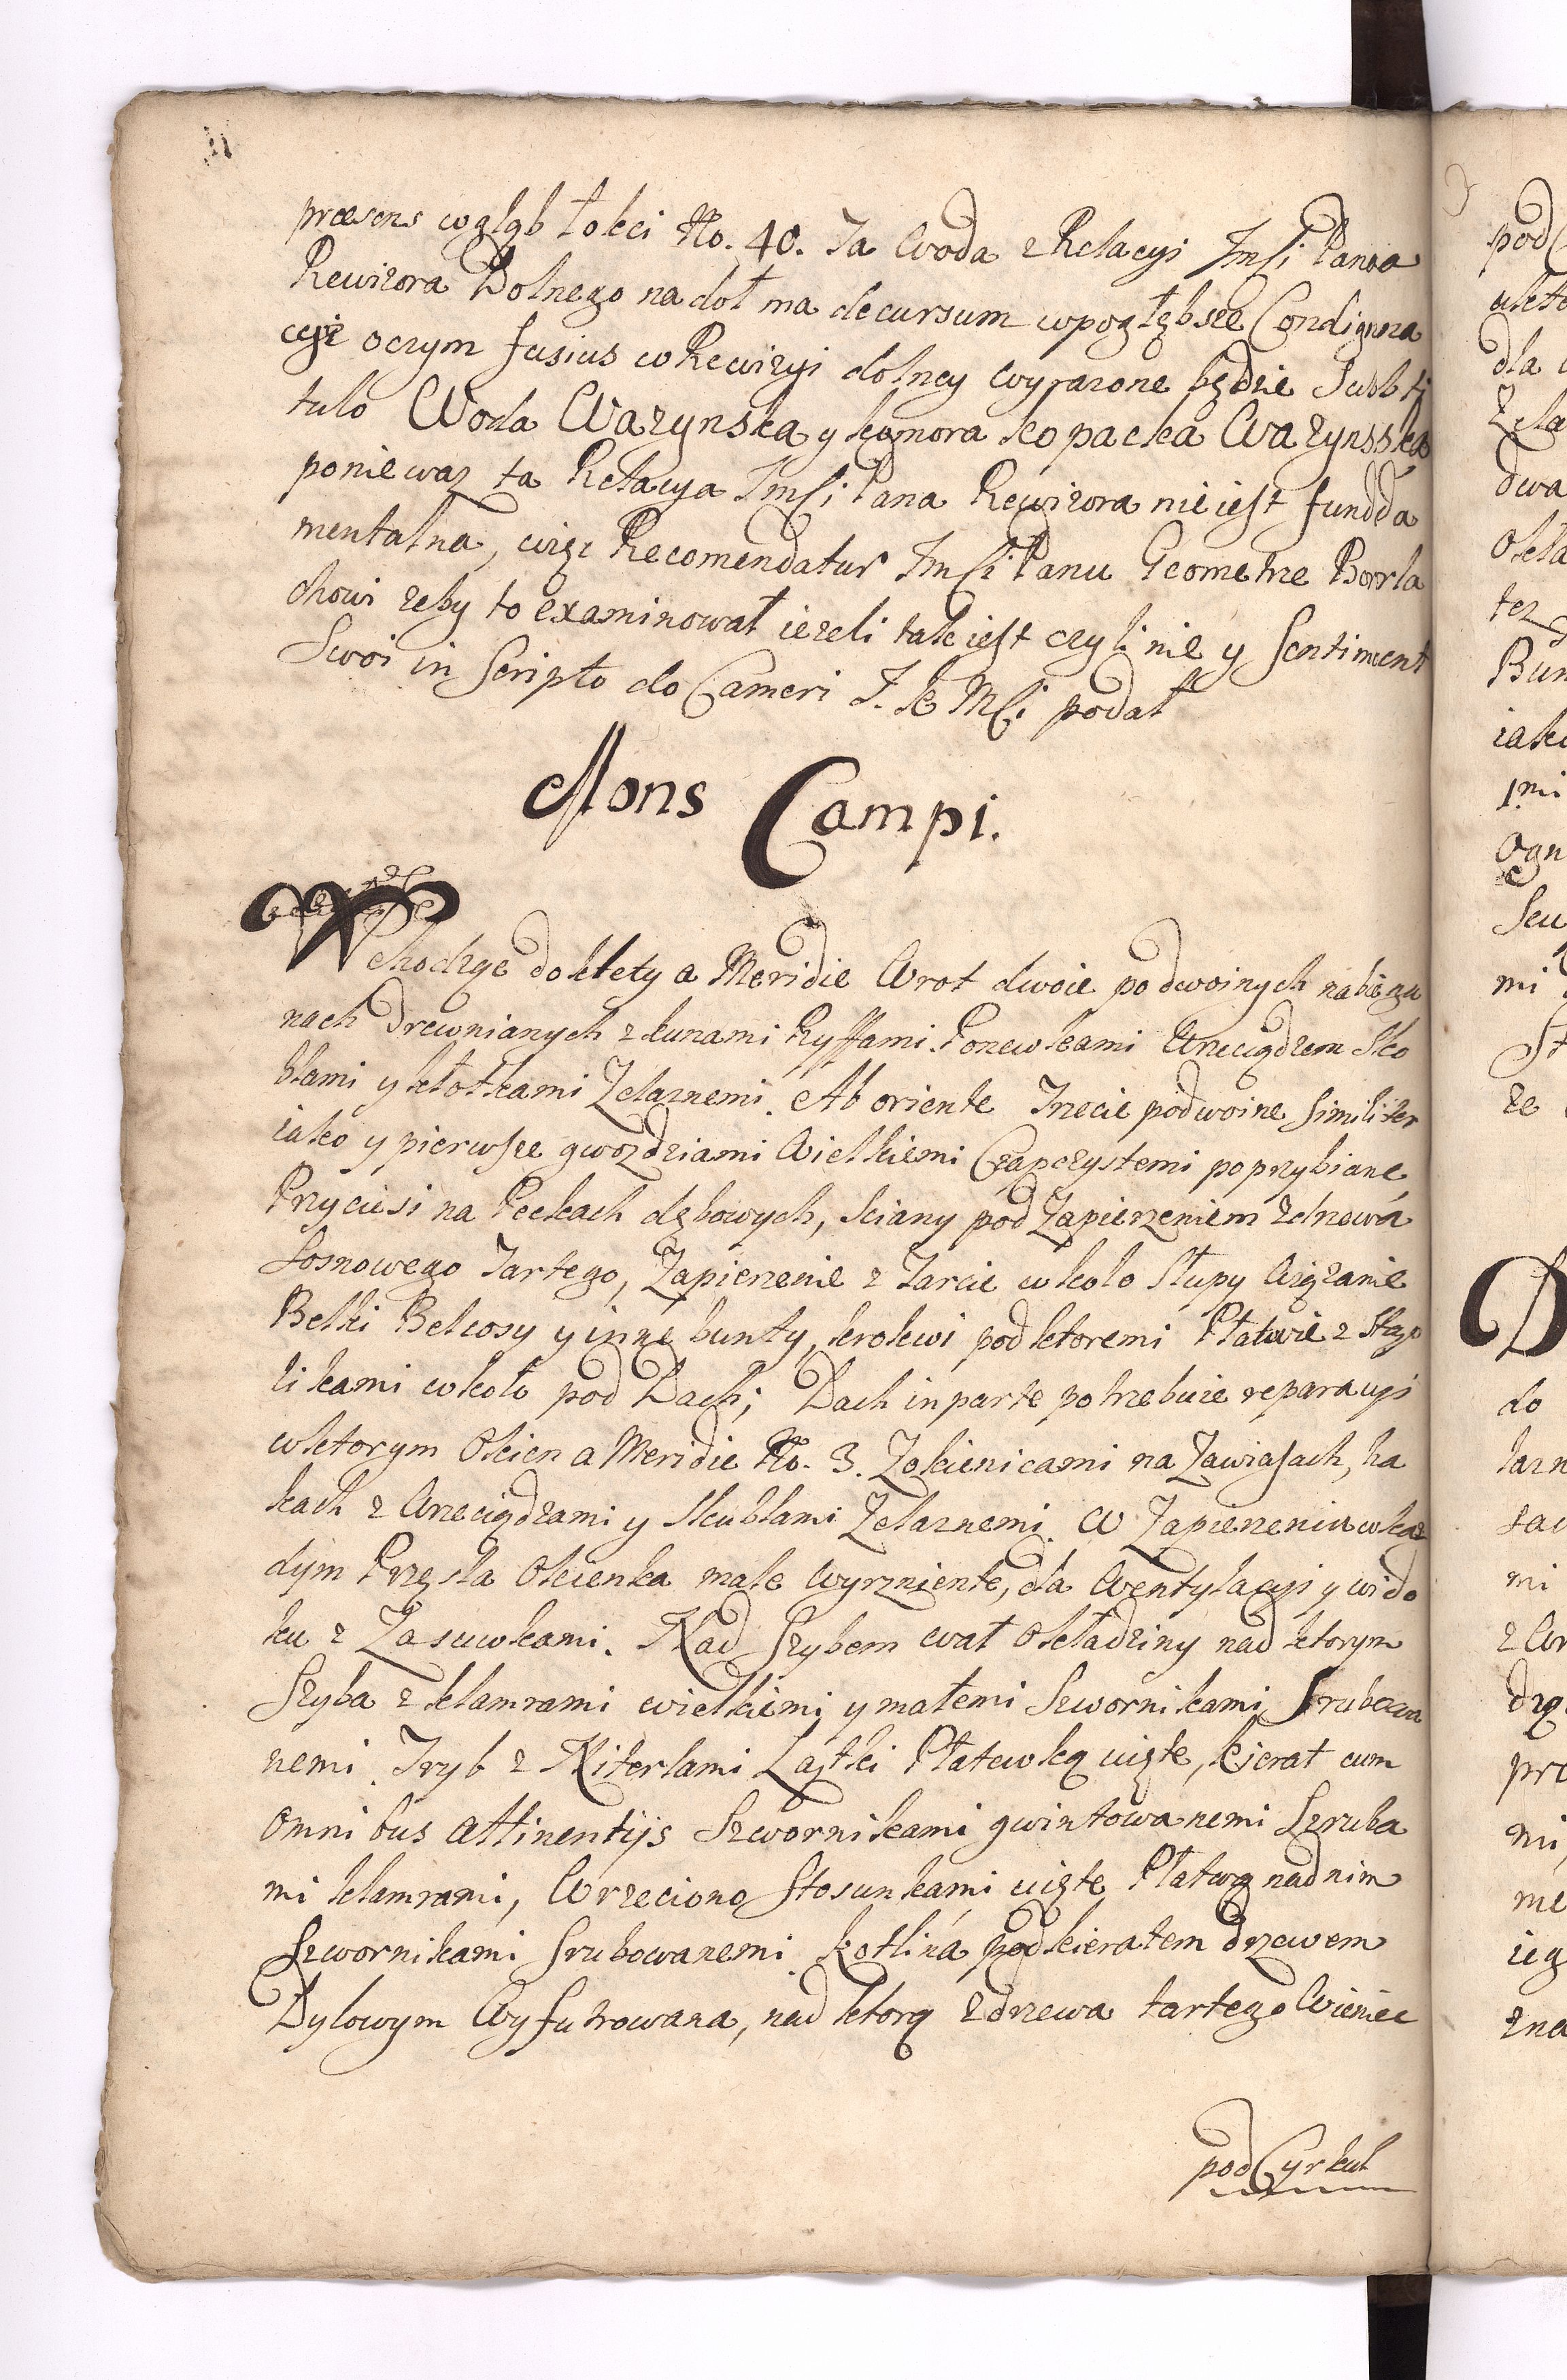 præsens wgłąb łokci No. 40. Ta Woda z Relacyi Jmści Pana
Rewizora Dolnego na doł ma decursum wpogłębsze Condigna
cyie oczym fusius w Rewizyi dolney wyrazone będzie Sub ti
tulo Woda Wazynska y komora kopacka Wazynsska
poniewaz ta Relacya Jmści Pana Rewizora nie iest funda
mentalna, więc Recomendatur Jmści Panu Geometrze Borla
chowi zeby to examinował iezeli tak iest czyli nie y Sentiment
Swoi in Scripto do Cameri J. K Mści podał
Mons Campi.
Wchodząc do klety a Meridie Wrot dwoie podwoinych na biegu
nach Drewnianych z kunami Ryffami Ponewkami Wrzeciądzem Sko
blami y kłotkami Zelaznemi. Ab oriente Trzecie podwoine similiter
iako y pierwsze gwozdziami Wielkiemi Czapczystemi poprzybiane
Przyciesi na Peckach dębowych, sciany pod Zapierzeniem zdrzewa
Sosnowego Tartego, Zapierzenie z Tarcic wkoło Słupy Wiązanie
Belki Belcosy y inne bunty, krokwi pod ktoremi Płatwie z Stęp
likami wkoło pod Dach; Dach in parte potrzebuie reparacyi
wktorym Okien a Meridie No. 3. Zokienicami na Zawiasach, ha
kach z Wrzeciądzami y Skublami Zelaznemi. W Zapierzeniu wkaz
dym Przęsla Okienka małe Wyrzniente, dla Wentylacyi y wido
ku z Zasuwkami. Nad Szybem wał Okładziny nad ktorym
Szyba z klamrami wielkiemi y małemi Szwornikami Srubowa
nemi. Tryb z Kiterlami Łątki Płatewką uięte, kierat cum
Omnibus attinentijs Szwornikami gwintowanemi Szruba
mi klamrami, Wrzeciono Stosunkami uięte Płatwą nadnim
Szwornikami Srubowanemi. Kotlina pod kieratem drzewem
Dylowym Wyfutrowana, nad ktorą z drzewa tartego Wieniec
pod Cyrkuł